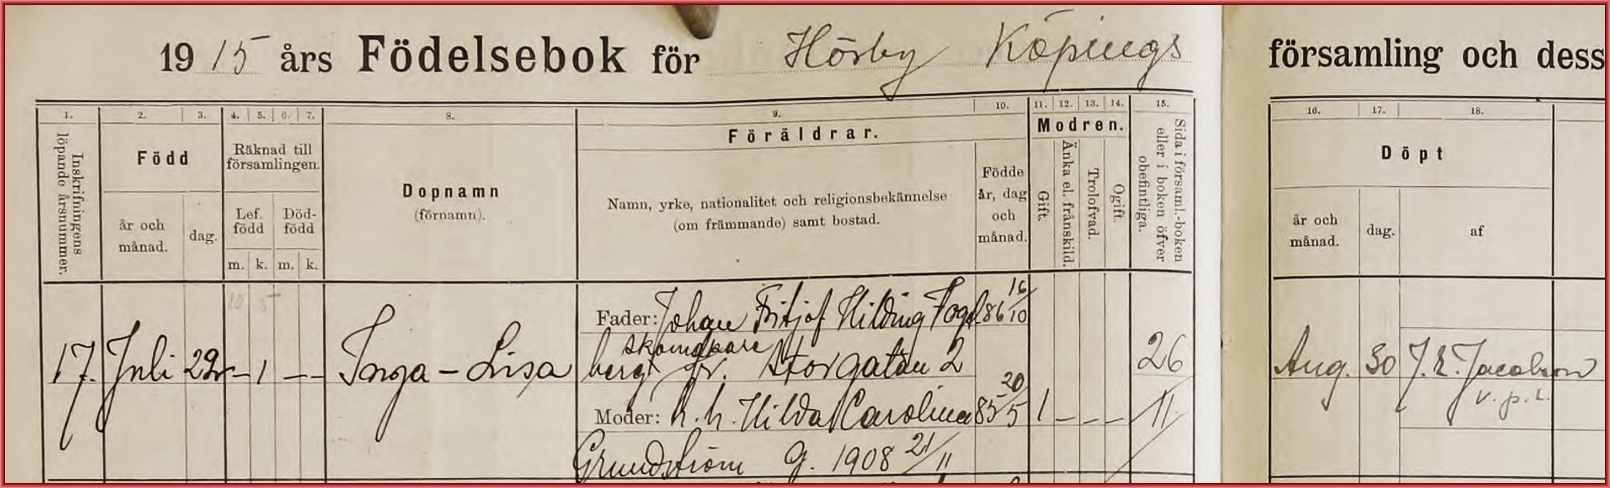 1915 års Födelsebok för Hörby Köpings församling och dess
1. 2. 3. 4. 5. 6. 7. 8. 9. 10. 11. 12. 13. 14. 15. 16. 17. 18.
Inskrifningens löpande årsnummer.
Född
år och månad.
dag.
Räknad till församlingen.
Lef. född
Död-född
m. k. m. k.
Dopnamn
(förnamn).
Föräldrar.
Namn, yrke, nationalitet och religionsbekännelse
(om främmande) samt bostad.
Födde år, dag och månad.
Modren.
Gift.
Änka el. frånskild.
Trolofvad.
Ogift.
Sida i församl.-boken eller i boken öfver obefintliga.
Döpt
år och månad.
dag.
af
Fader: Johan Fritjof Hilding Fogel 86 16/10
skomakare
17. Juli 22 – 1 – – Inga-Lisa berg fr. Storgatan 2 26 Aug. 30 J. E. Jacobson
v. p. l.
Moder: h. h. Hilda Carolina 85 20/5 1 – – – 11
Grundström g. 1908 21/11